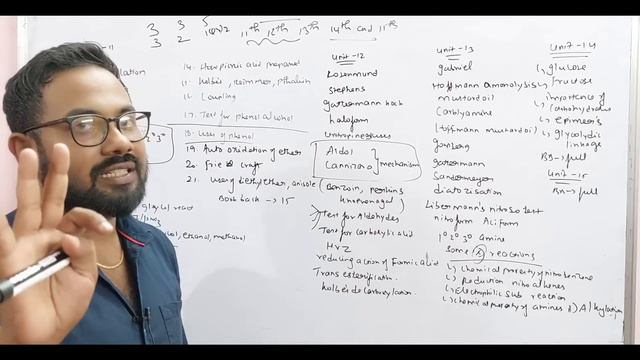 3 3 5
3 2
11th 12th 13th 14th and 11th
-11
14. How picric acid prepared
15. Kolbe's, Reimmer, Pthalein
16. Coupling
17. Test for phenol alcohol
18. Uses of phenol
19. Auto oxidation of ether
20. craft
21. Uses diethyl ether, anisole
Book back → 15
2° 3°
glycol, ethanol, methanol
Unit-12
Rosenmund
Stephens
haloform
Urotropine & uses
Aldol
Cannizaro } mechanism
(Benzoin, Perkins
Knoevenagel)
Test for Aldehydes
Test for carboxylic acid
HVZ
reducing action of Formic acid
Trans esterification.
Kolbe's decarboxylation.
Unit-13
Gabriel
Hoffmann Ammonolysis
mustard oil
Carbylamine
Hoffmann mustard oil
Gattermann
Sandemeyer
diatozisation
Libermann's nitroso test
nitroform Aci form
1° 2° 3° amine
Some reactions
↳ chemical property of nitrobenzene
↳ Reduction nitro alkenes
↳ Electrophilic sub reaction
↳ chemical property of amines Alkylation
Unit-14
↳ glucose
↳ fructose
importance of
carbohydrates
↳ epimers
↳ glycolydic
linkage
BB → full
Unit-15
BB → full